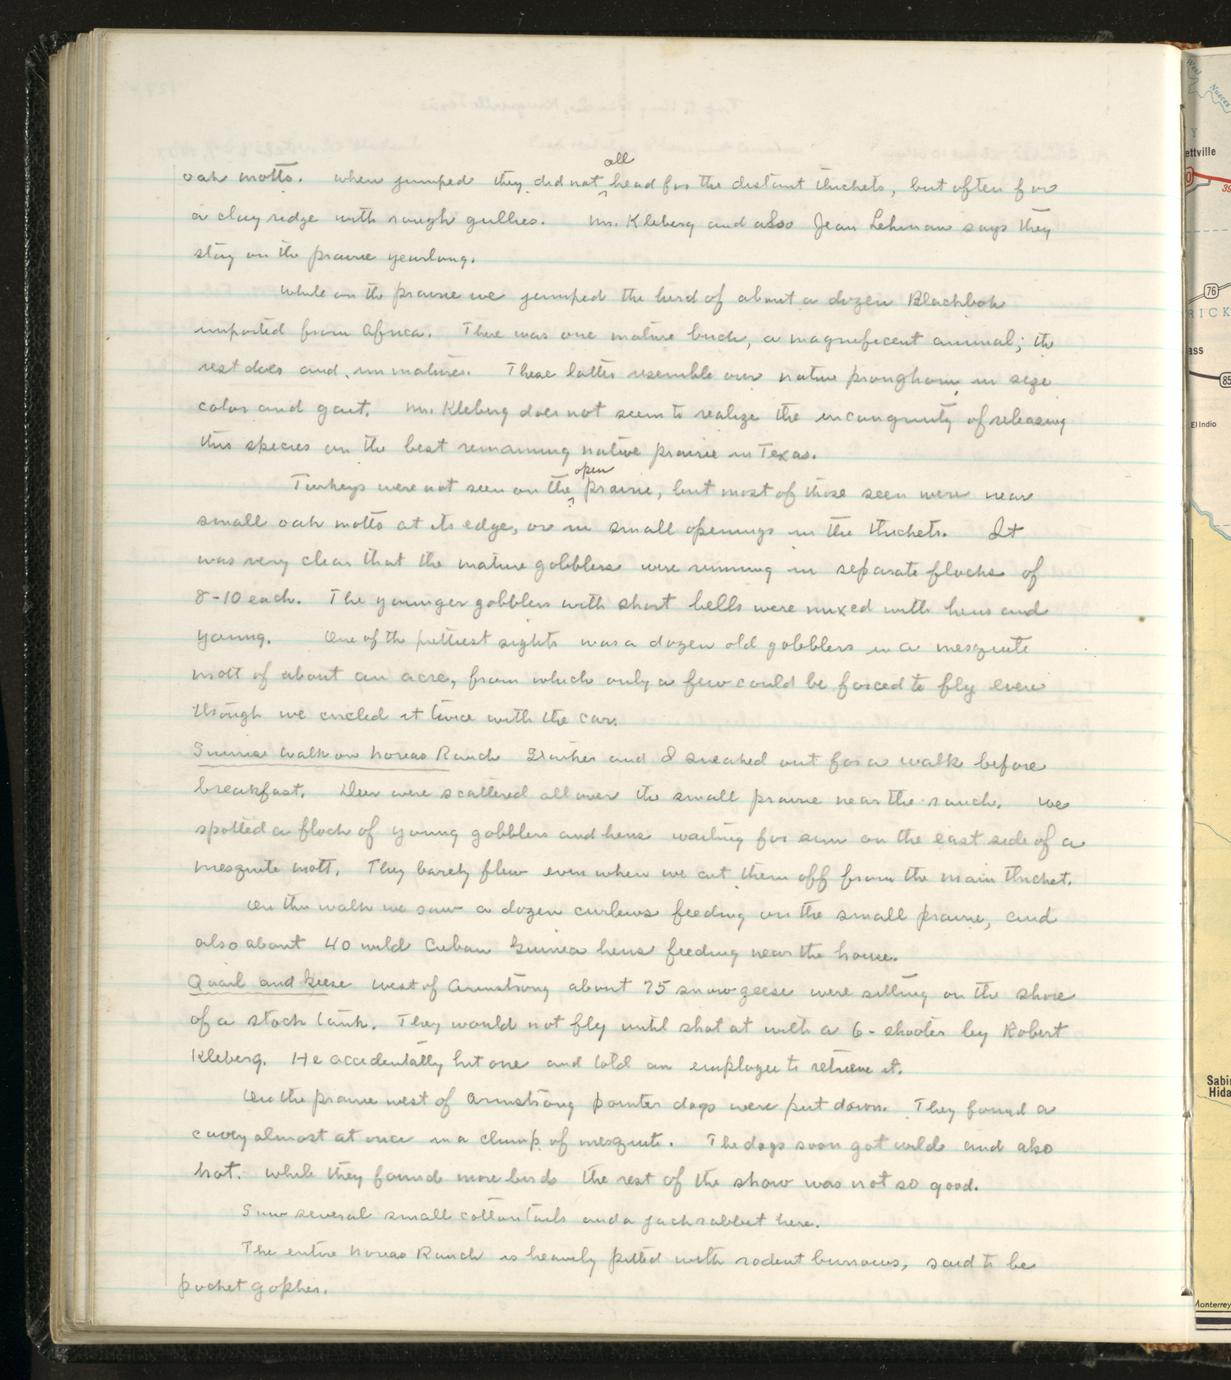 all
oak motts. When jumped they did not head for the distant thickets, but often for
a clay ridge with rough gullies. Mr. Kleberg and also Jean Lehman says they
stay on the prairie yearlong.
While on the prairie we jumped the herd of about a dozen Blackbok
imported from Africa. There was one mature buck, a magnificent animal; the
rest does and immatures. These latter resemble our native pronghorn in size
color and gait. Mr. Kleberg does not seem to realize the incongruity of releasing
this species on the best remaining native prairie in Texas.
open
Turkeys were not seen on the prairie, but most of those seen were near
small oak motts at its edge, or in small openings in the thickets. It
was very clear that the mature gobblers were running in separate flocks of
8-10 each. The younger gobblers with short bells were mixed with hens and
young. One of the prettiest sights was a dozen old gobblers in a mesquite
mott of about an acre, from which only a few could be forced to fly even
though we circled it twice with the car.
Sunrise Walk on Noreas Ranch Starker and I sneaked out for a walk before
breakfast. Deer were scattered all over the small prairie near the ranch. We
spotted a flock of young gobblers and hens waiting for sun on the east side of a
mesquite mott. They barely flew even when we cut them off from the main thicket.
On the walk we saw a dozen curlews feeding on the small prairie, and
also about 40 wild Cuban Guinea hens feeding near the house.
Quail and Geese West of Armstrong about 75 snow geese were sitting on the shore
of a stock tank. They would not fly until shot at with a 6-shooter by Robert
Kleberg. He accidentally hit one and told an employee to retrieve it.
On the prairie west of Armstrong pointer dogs were put down. They found a
covey almost at once in a clump of mesquite. The dogs soon got wild and also
hot. While they found more birds the rest of the show was not so good.
Saw several small cottontails and a jackrabbit here.
The entire Noreas Ranch is heavily pitted with rodent burrows, said to be
pocket gopher.
Nueces
Y
ettville
76
RICK
ass
85
El Indio
Sabi
Hida
Monterrey